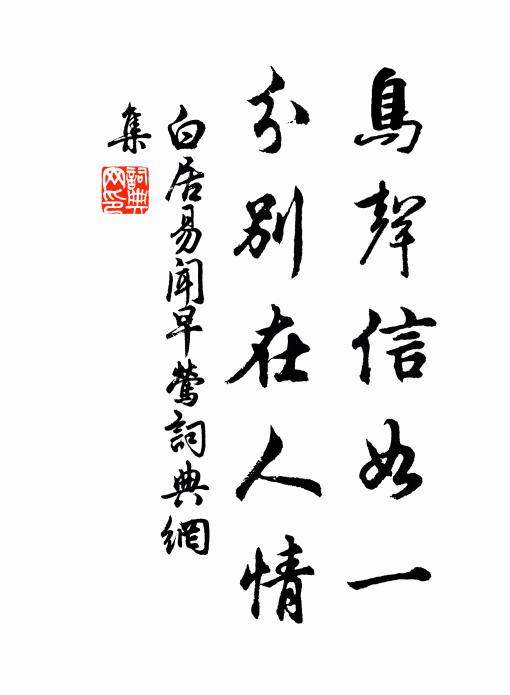 鳥聲信如一
分別在人情
白居易聞早鶯詞典網
集
詞典網印